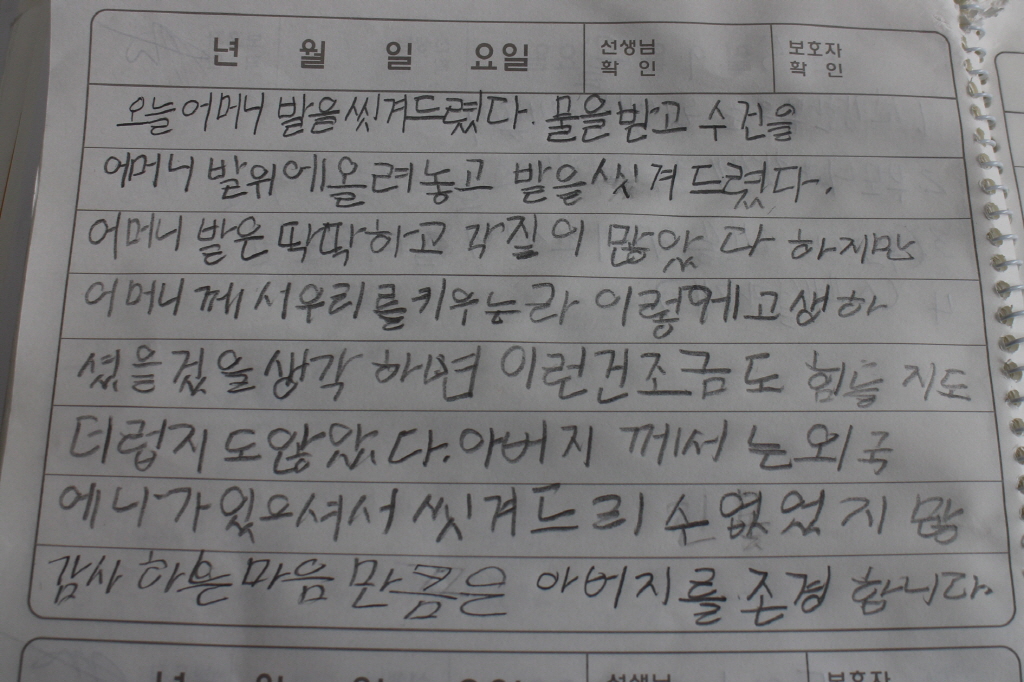 년 월 일 요일 선생님 확 인 보호자 확 인
오늘 어머니 발을 씻겨드렸다. 물을 받고 수건을
어머니 발위에 올려놓고 발을 씻겨 드렸다.
어머니 발은 딱딱하고 각질이 많았다 하지만
어머니께서 우리를 키우는라 이렇에 고생하
셨을 겄을 생각 하면 이런건 조금도 힘들지도
더럽지도 않았다. 아버지 께서는 외국
에 니가 있으셔서 씻겨드리수 없었지많
감사 하은 마음 만큼은 아버지를 존경 합니다.
년 월 일 요일 선생님 보호자